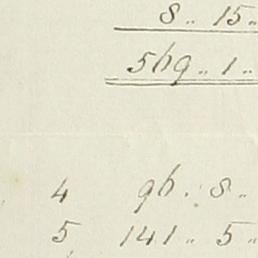 8 .. 15 ..
569 .. 1 ..
4 96 .. 8 ..
5 141 .. 5 ..